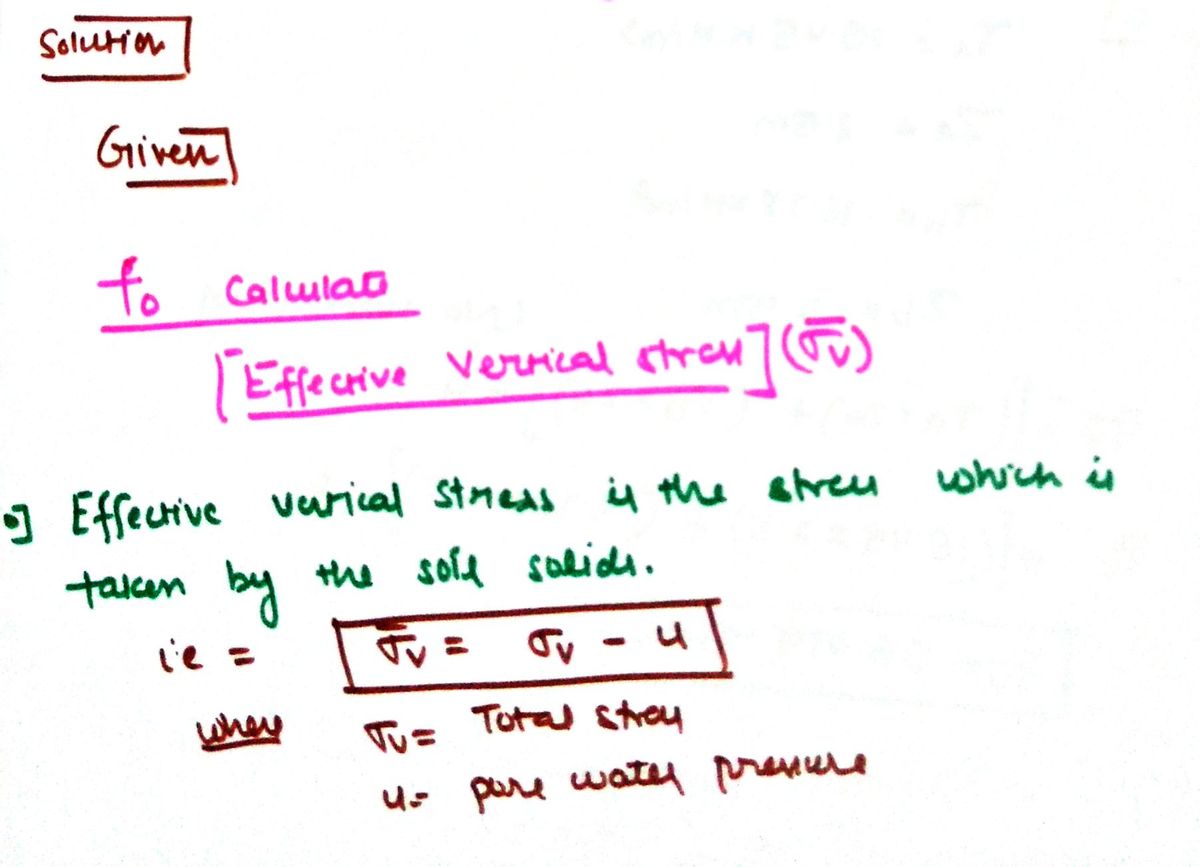 Solution
Given
To Calculate
[Effective Vertical stress] (σ̅v)
•] Effective vertical stress is the stress which is
taken by the soil solids.
i.e = σ̅v = σv - u
where σv = Total stress
u = pore water pressure